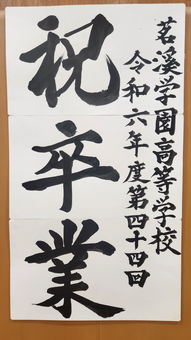 茗溪学園高等学校
令和六年度第四十四回
祝卒業